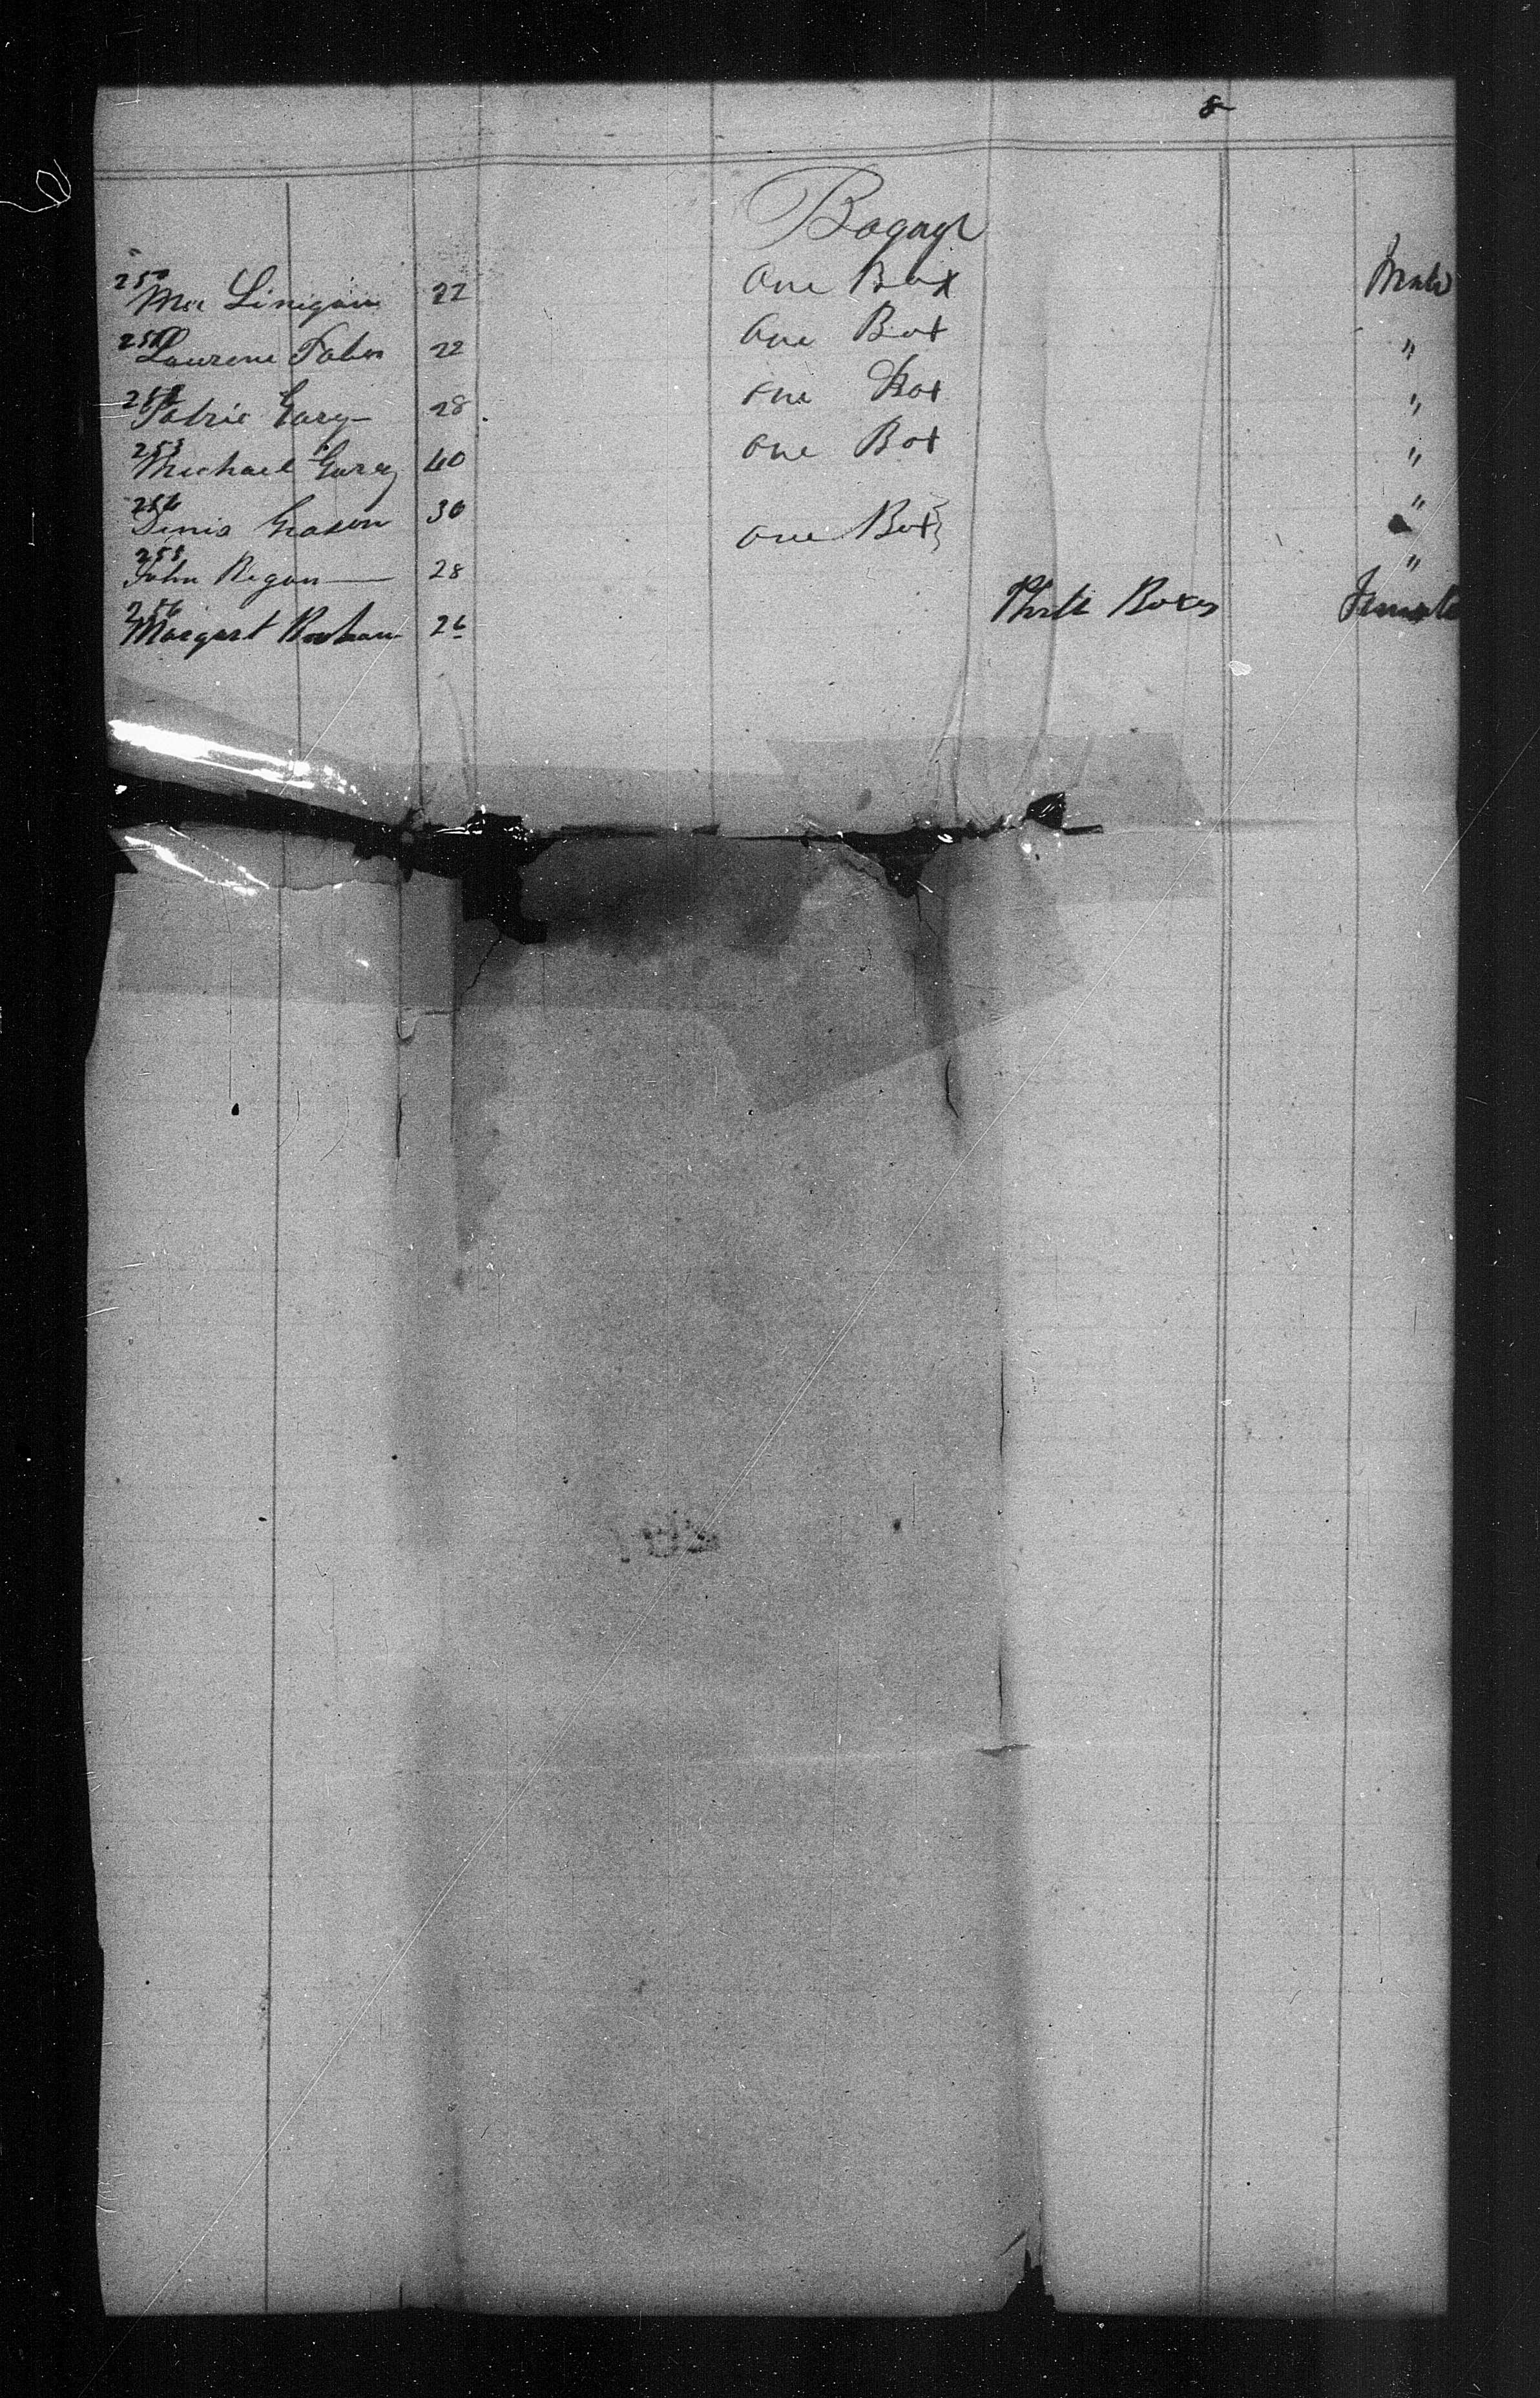 8
Bagage
250 Linigan 22 One Box Male
251 Laurene 22 One Box "
252 Patric Gary 28 one Box "
253 Michael Gary 40 one Box "
254 Denis 30 one Box "
255 John Regan 28 "
256 Margart 26 Three Boxes Female